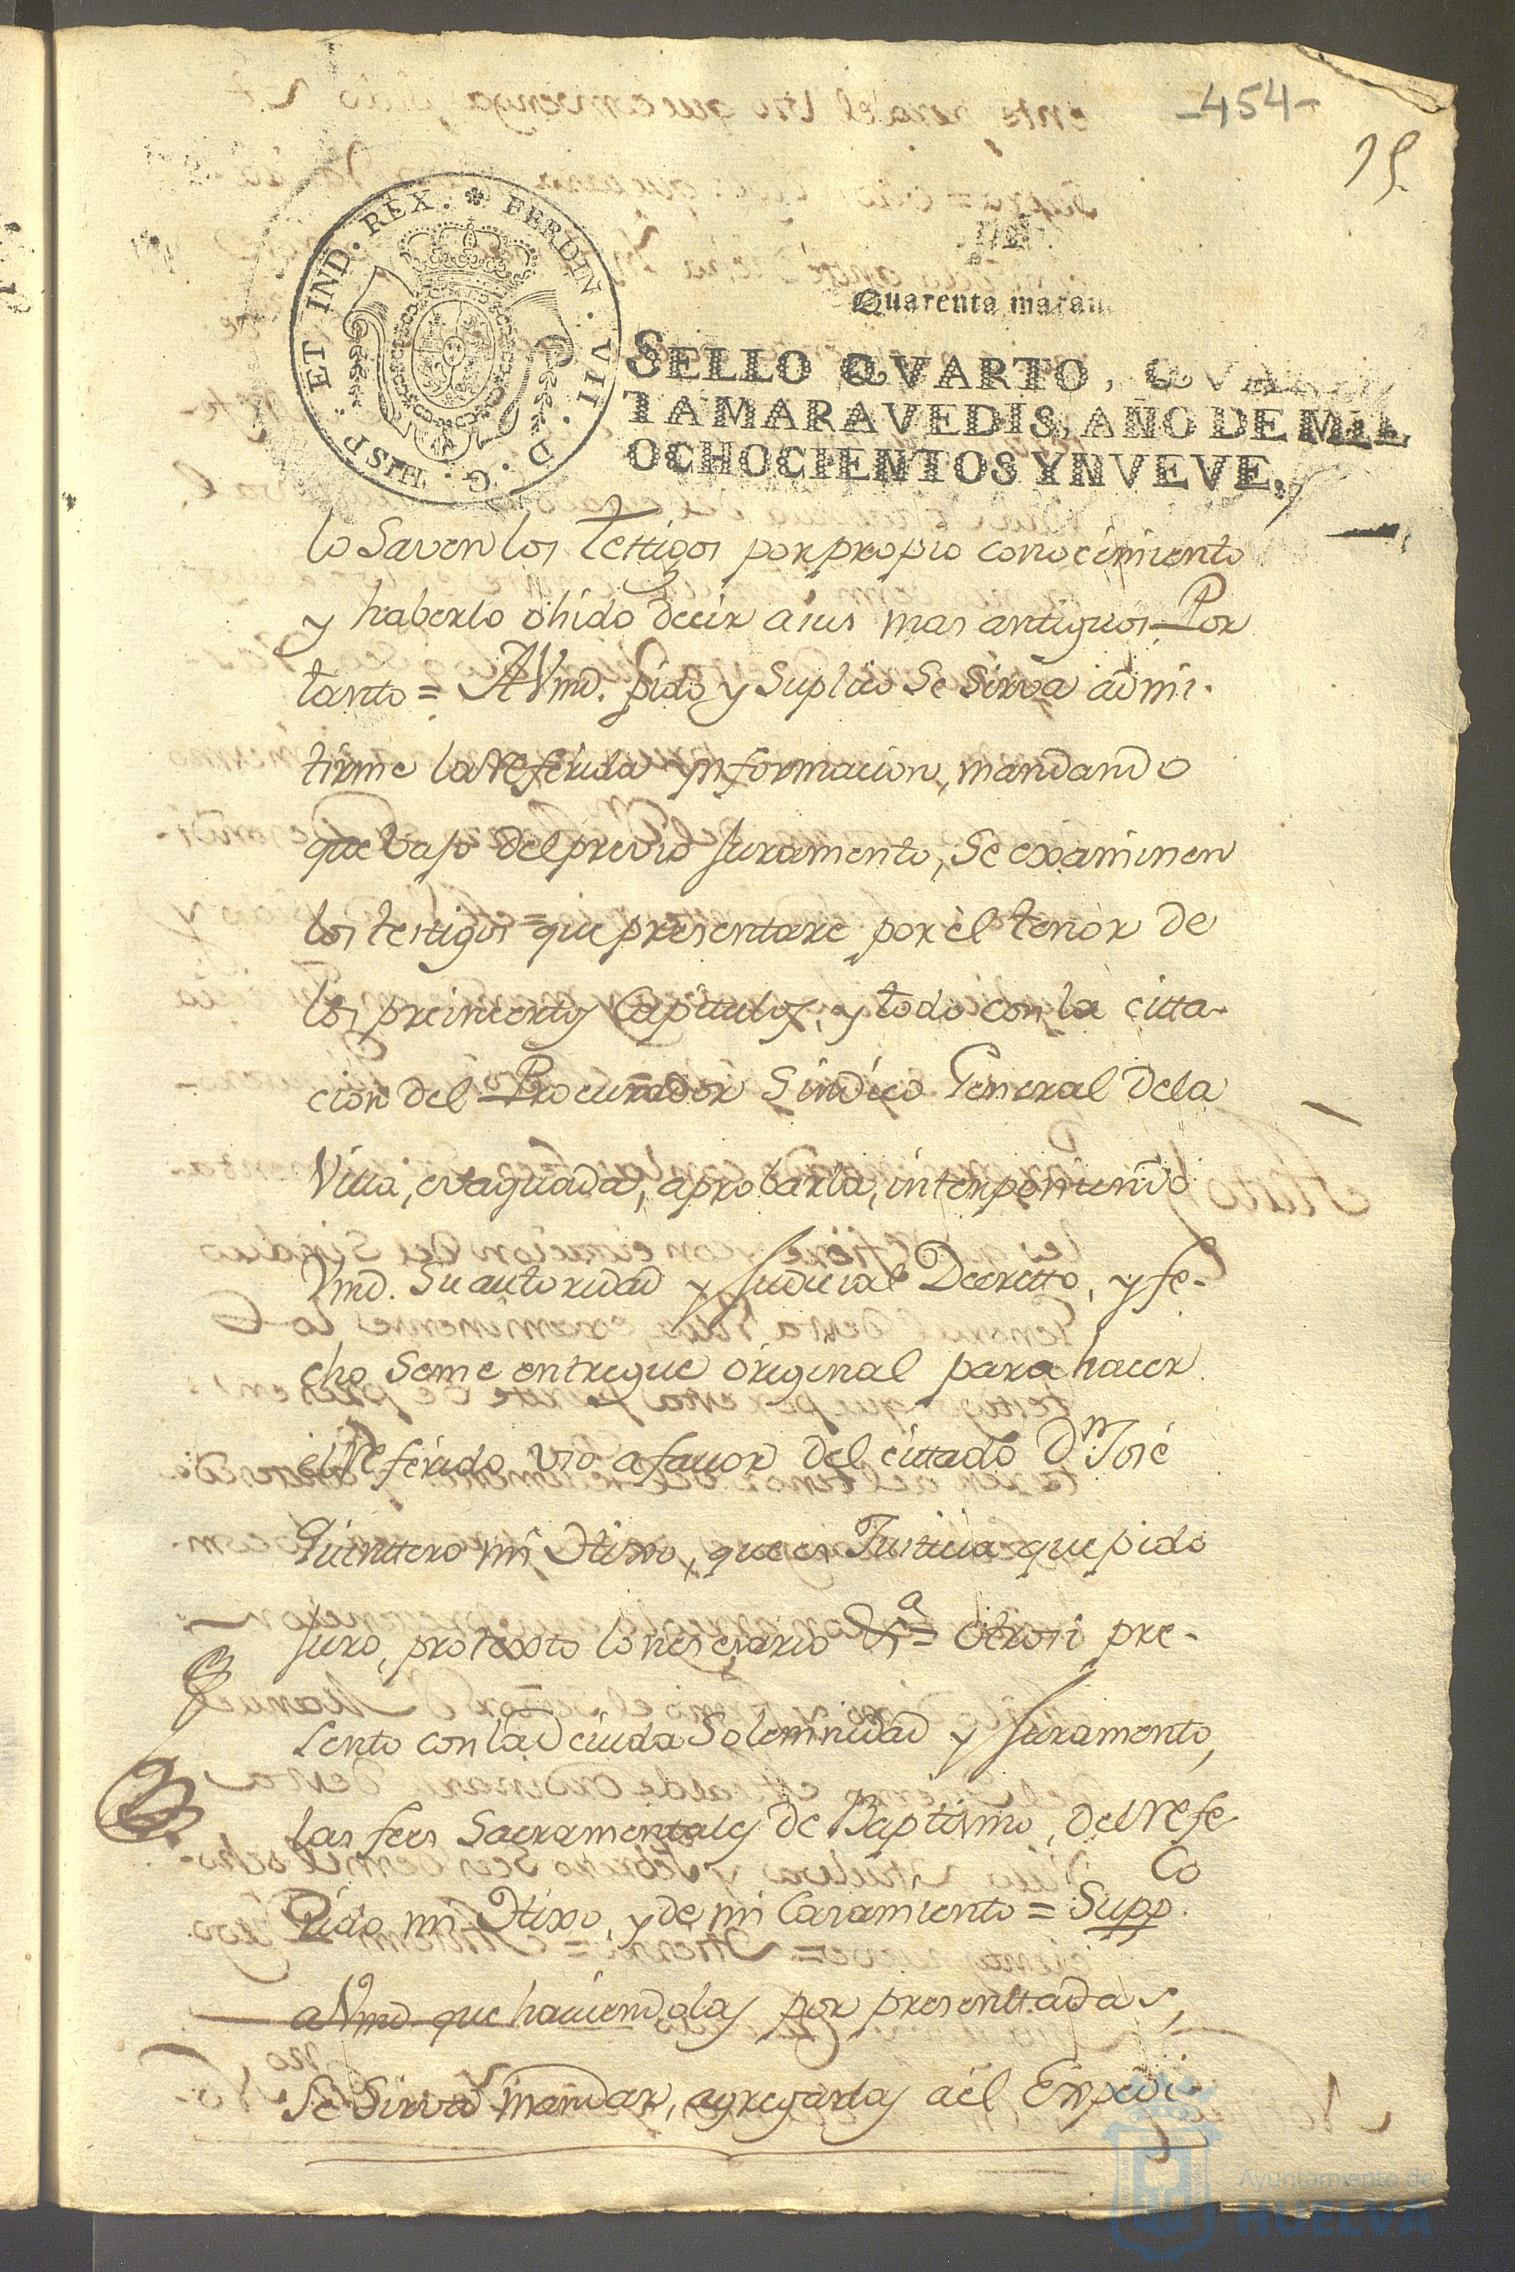 -454-
15.
HISP. ET IND. REX. * FERDIN. VII. D. G.
Quarenta marav
SELLO QVARTO, QVAREN
TAMARAVEDIS, AÑO DE MIL
OCHOCIENTOS Y NVEVE.
lo Saven los Testigos por propio conocimiento
y haberlo ohido decir a sus mas antiguos Por
tanto = A Vmd. pido y Suplico Se Sirva admi-
tirme la referida ynformacion, mandando
que bajo del previo Juramento, Se examinen
los testigos que presentare por el tenor de
los preincertos Capitulos, y todo con la citta-
cion del Procurador Sindico General de la
Villa, evaquada, aprobarla, interponiendo
Vmd. Su autoridad y Judicial Decretto, y fe-
cho Seme entregue original para hacer
el referido uso a favor del cittado Dn. José
Quinttero mi Hixo, que es Justicia que pido
Juro, protexto lo nesesario &a = Otrosi pre-
sento con la devida Solemnidad y Juramento,
las fees Sacramentales de Baptismo, del refe-
rido mi Hixo, y de mi Casamiento = Suppco.
a Vmd. que haciendolas por presenttadas,
Se Sirva mandar, agregarlas a él Expedi-
Ayuntamiento de
HUELVA